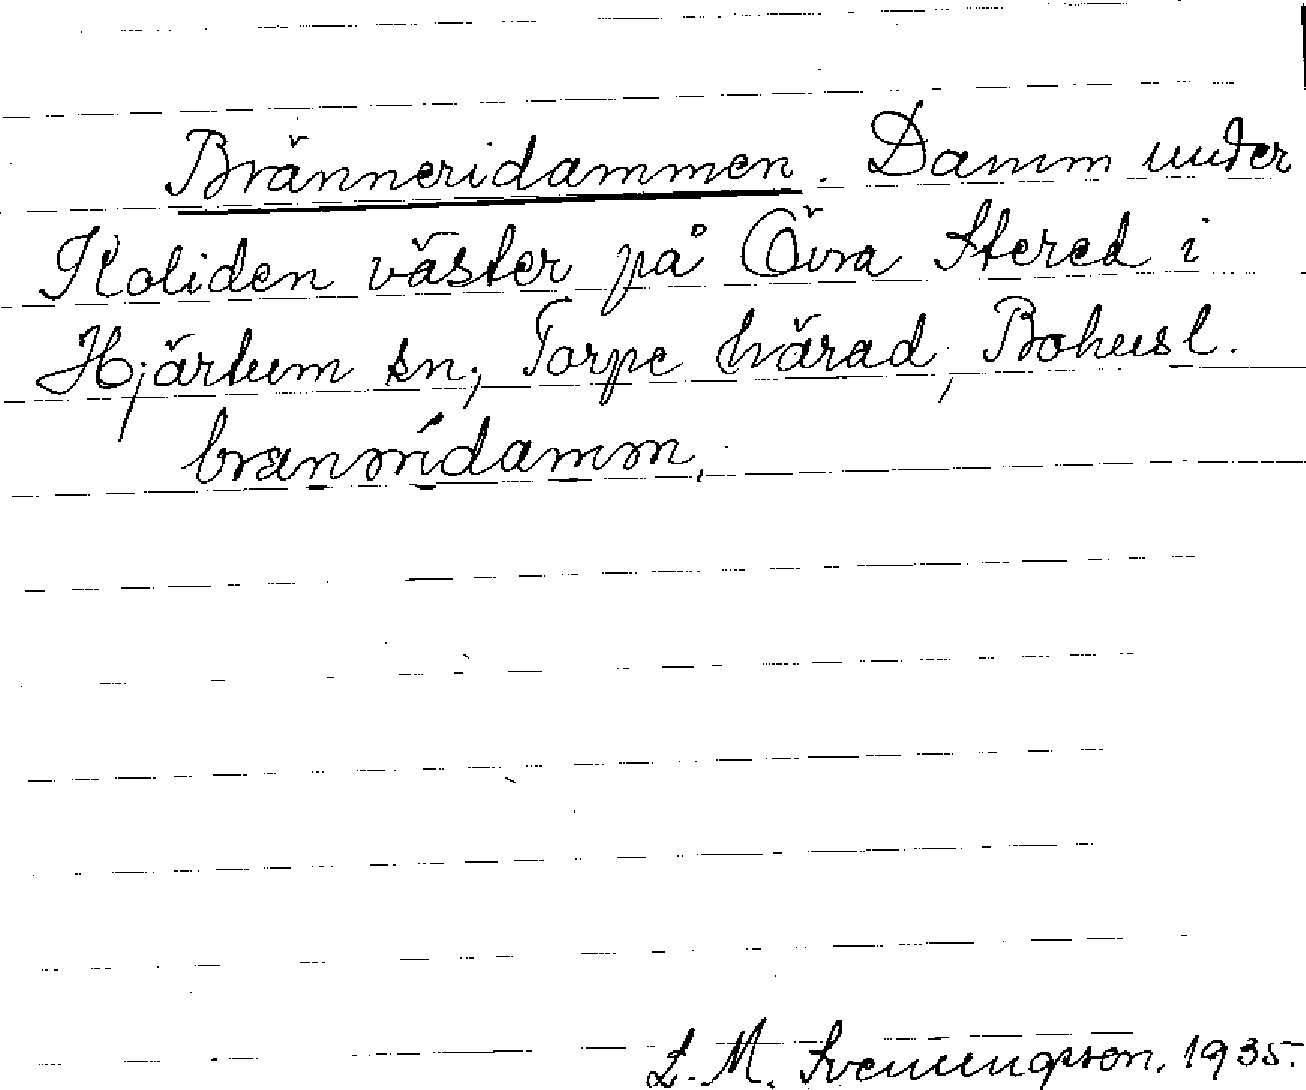 Bränneridammen. Damm under
Koliden väster på Övra Stered i
Hjärtum sn, Torpe härad, Bohusl.
L. M. Svenungsson. 1935.